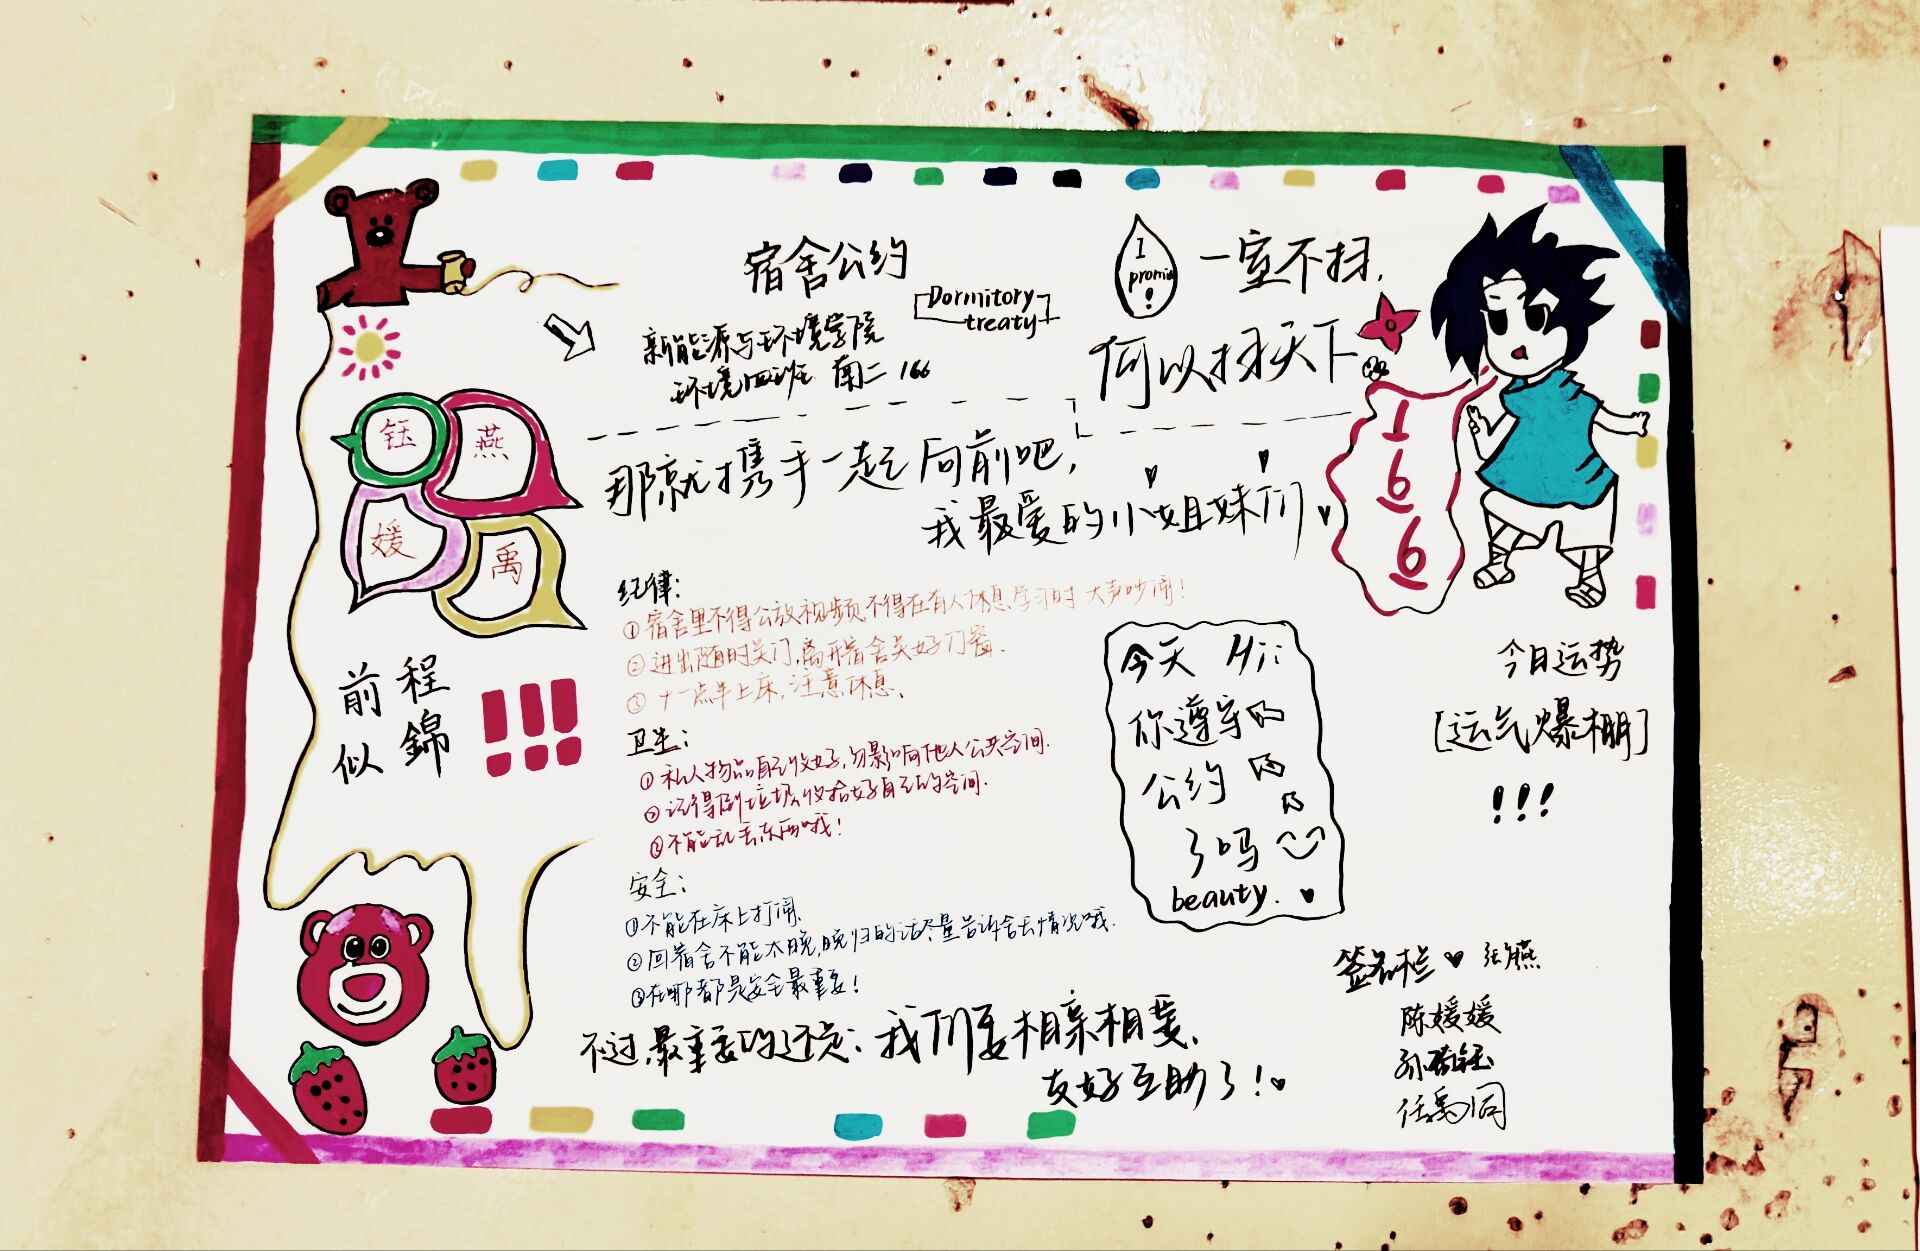 宿舍公约
Dormitory
treaty
新能源与环境学院
环境四班 南二 166
I
promise
!
一室不扫，
何以扫天下
166
钰
燕
媛
禹
那就携手一起向前吧，
我最爱的小姐妹们
前程
似錦
!!!
纪律：
①宿舍里不得公放视频，不得在有人休息学习时大声吵闹！
②进出随时关门，离开宿舍关好门窗．
③十一点半上床，注意休息．
卫生：
①私人物品自己收好，勿影响他人公共空间．
②记得倒垃圾，收拾好自己的空间．
③不能乱丢东西哦！
安全：
①不能在床上打闹．
②回宿舍不能太晚，晚归的话尽量告诉舍长情况哦．
③在哪都是安全最重要！
不过，最重要的还是：我们要相亲相爱、
友好互助了！
今天 Hi：
你遵守
公约
了吗
beauty.
今日运势
[运气爆棚]
!!!
签名栏 张燕
陈媛媛
任禹同